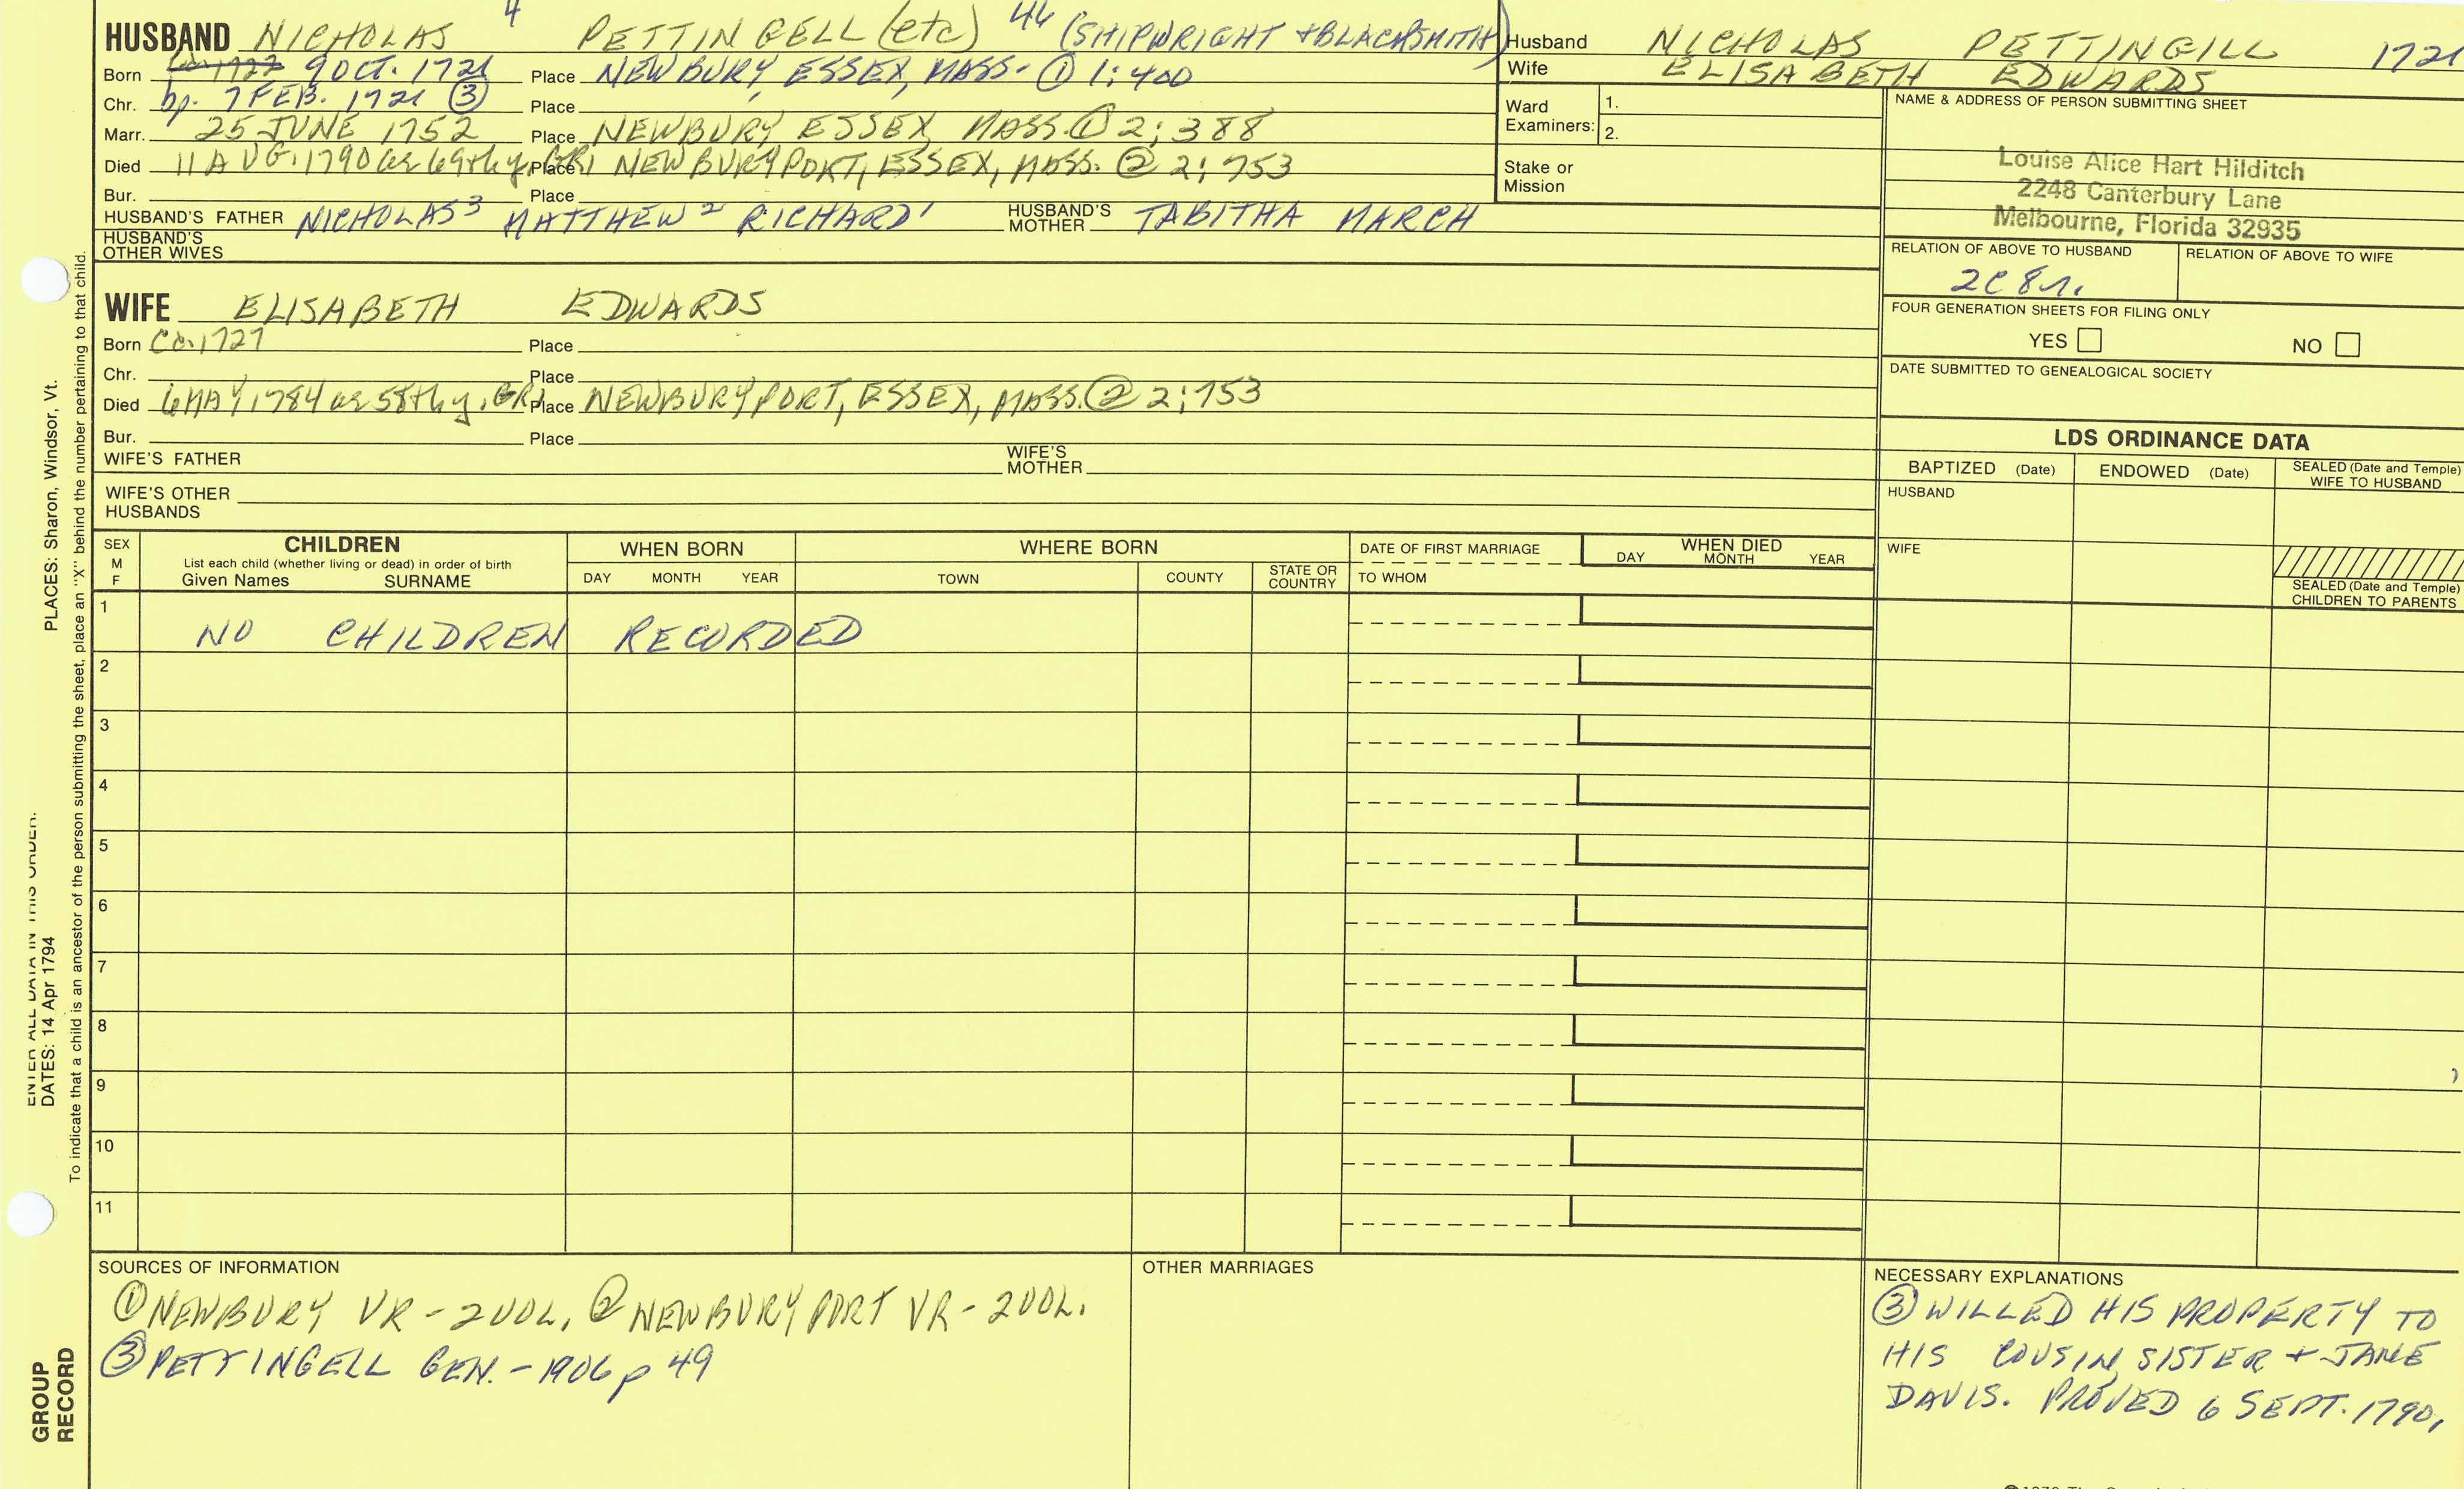 HUSBAND NICHOLAS 4 PETTINGELL (etc) 44 (SHIPWRIGHT + BLACKSMITH)
Born ca. 1727 9 OCT. 1721 Place NEWBURY, ESSEX, MASS. ① 1:400
Chr. bp. 7 FEB. 1721 ③ Place
Marr. 25 JUNE 1752 Place NEWBURY ESSEX, MASS. ① 2:388
Died 11 AUG. 1790 ae 69th y. GR1 Place NEWBURYPORT, ESSEX, MASS. ② 2:753
Bur. Place
HUSBAND'S FATHER NICHOLAS 3 MATTHEW 2 RICHARD 1 HUSBAND'S MOTHER TABITHA MARCH
HUSBAND'S OTHER WIVES
WIFE ELISABETH EDWARDS
Born Ca. 1727 Place
Chr. Place
Died 6 MAY 1784 ae 58th y. GR1 Place NEWBURYPORT, ESSEX, MASS. ② 2:753
Bur. Place
WIFE'S FATHER WIFE'S MOTHER
WIFE'S OTHER HUSBANDS
Husband NICHOLAS PETTINGILL 1721
Wife ELISABETH EDWARDS
Ward Examiners: 1.
2.
Stake or Mission
NAME & ADDRESS OF PERSON SUBMITTING SHEET
Louise Alice Hart Hilditch
2248 Canterbury Lane
Melbourne, Florida 32935
RELATION OF ABOVE TO HUSBAND RELATION OF ABOVE TO WIFE
2C 8r.
FOUR GENERATION SHEETS FOR FILING ONLY
YES NO
DATE SUBMITTED TO GENEALOGICAL SOCIETY
LDS ORDINANCE DATA
BAPTIZED (Date) ENDOWED (Date) SEALED (Date and Temple) WIFE TO HUSBAND
HUSBAND
WIFE
SEALED (Date and Temple) CHILDREN TO PARENTS
SEX M F
CHILDREN
List each child (whether living or dead) in order of birth
Given Names SURNAME
WHEN BORN
DAY MONTH YEAR
WHERE BORN
TOWN COUNTY STATE OR COUNTRY
DATE OF FIRST MARRIAGE
TO WHOM
WHEN DIED
DAY MONTH YEAR
1 NO CHILDREN RECORDED
2
3
4
5
6
7
8
9
10
11
SOURCES OF INFORMATION
① NEWBURY VR - 2 VOL. ② NEWBURYPORT VR - 2 VOL.
③ PETTINGELL GEN. - 1906 p 49
OTHER MARRIAGES
NECESSARY EXPLANATIONS
③ WILLED HIS PROPERTY TO
HIS COUSIN, SISTER + JANE
DAVIS. PROVED 6 SEPT. 1790,
ENTER ALL DATA IN THIS ORDER:
DATES: 14 Apr 1794 PLACES: Sharon, Windsor, Vt.
To indicate that a child is an ancestor of the person submitting the sheet, place an "X" behind the number pertaining to that child.
GROUP
RECORD